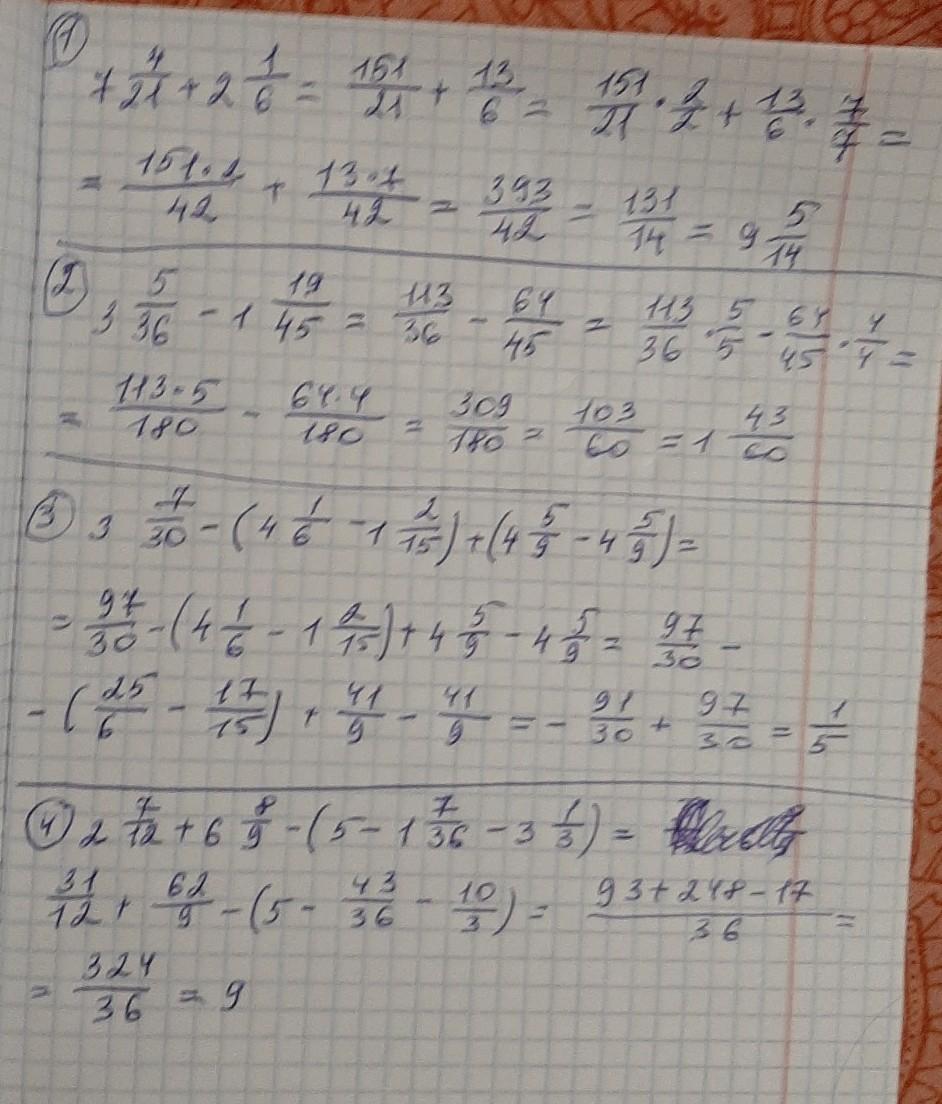 ① 7 4/21 + 2 1/6 = 151/21 + 13/6 = 151/21 · 2/2 + 13/6 · 7/7 =
= 151·2/42 + 13·7/42 = 393/42 = 131/14 = 9 5/14
② 3 5/36 - 1 19/45 = 113/36 - 64/45 = 113/36 · 5/5 - 64/45 · 4/4 =
= 113·5/180 - 64·4/180 = 309/180 = 103/60 = 1 43/60
③ 3 7/30 - (4 1/6 - 1 2/15) + (4 5/9 - 4 5/9) =
= 97/30 - (4 1/6 - 1 2/15) + 4 5/9 - 4 5/9 = 97/30 -
- (25/6 - 17/15) + 41/9 - 41/9 = - 91/30 + 97/30 = 1/5
④ 2 7/12 + 6 8/9 - (5 - 1 7/36 - 3 1/3) =
31/12 + 62/9 - (5 - 43/36 - 10/3) = 93+248-17/36 =
= 324/36 = 9